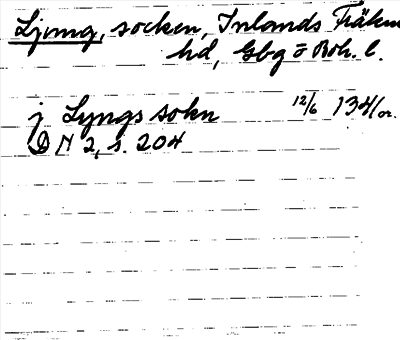 Ljung, socken, Inlands Fräkne
hd, Gbg o Boh. l.
j Lyngs sokn 12/6 1341 or.
DN 2, s. 204